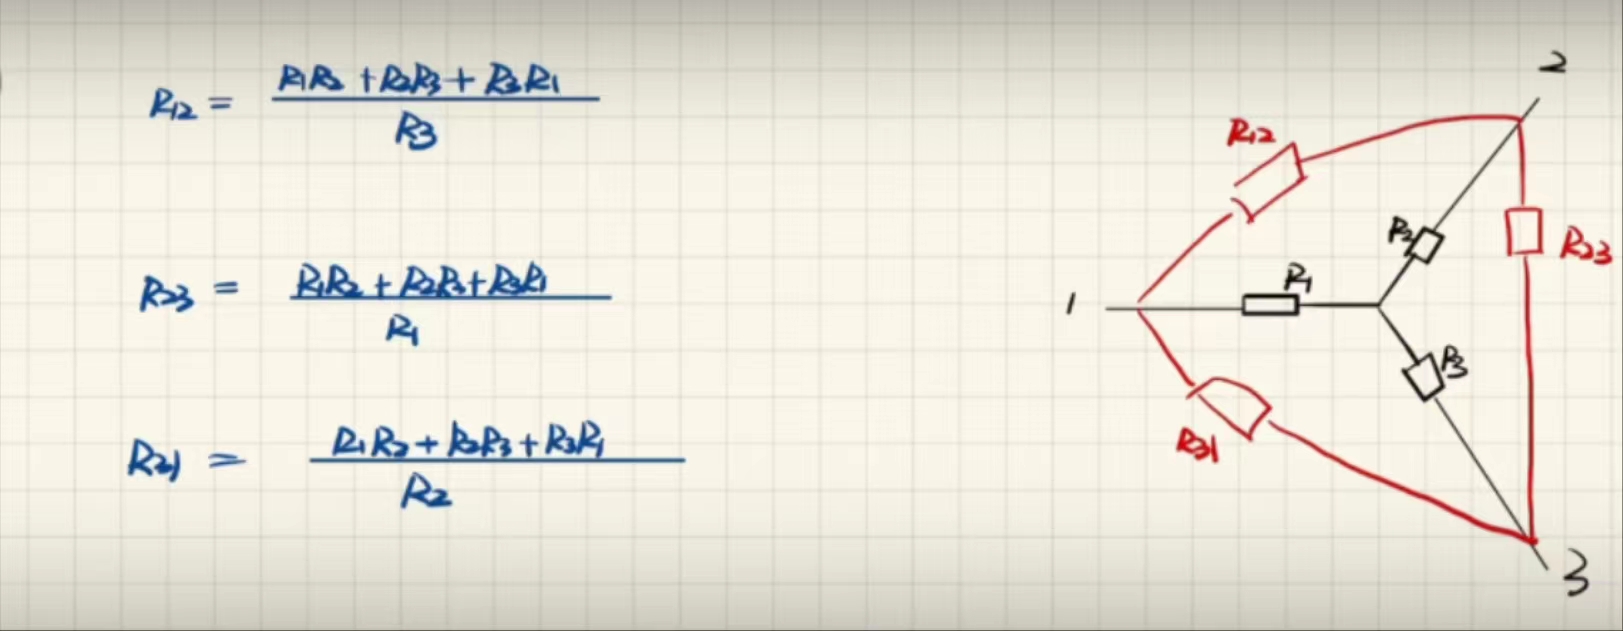 R12 = (R1R2 + R2R3 + R3R1) / R3
R23 = (R1R2 + R2R3 + R3R1) / R1
R31 = (R1R2 + R2R3 + R3R1) / R2
2
R12
R2
R23
R1
1
R3
R31
3